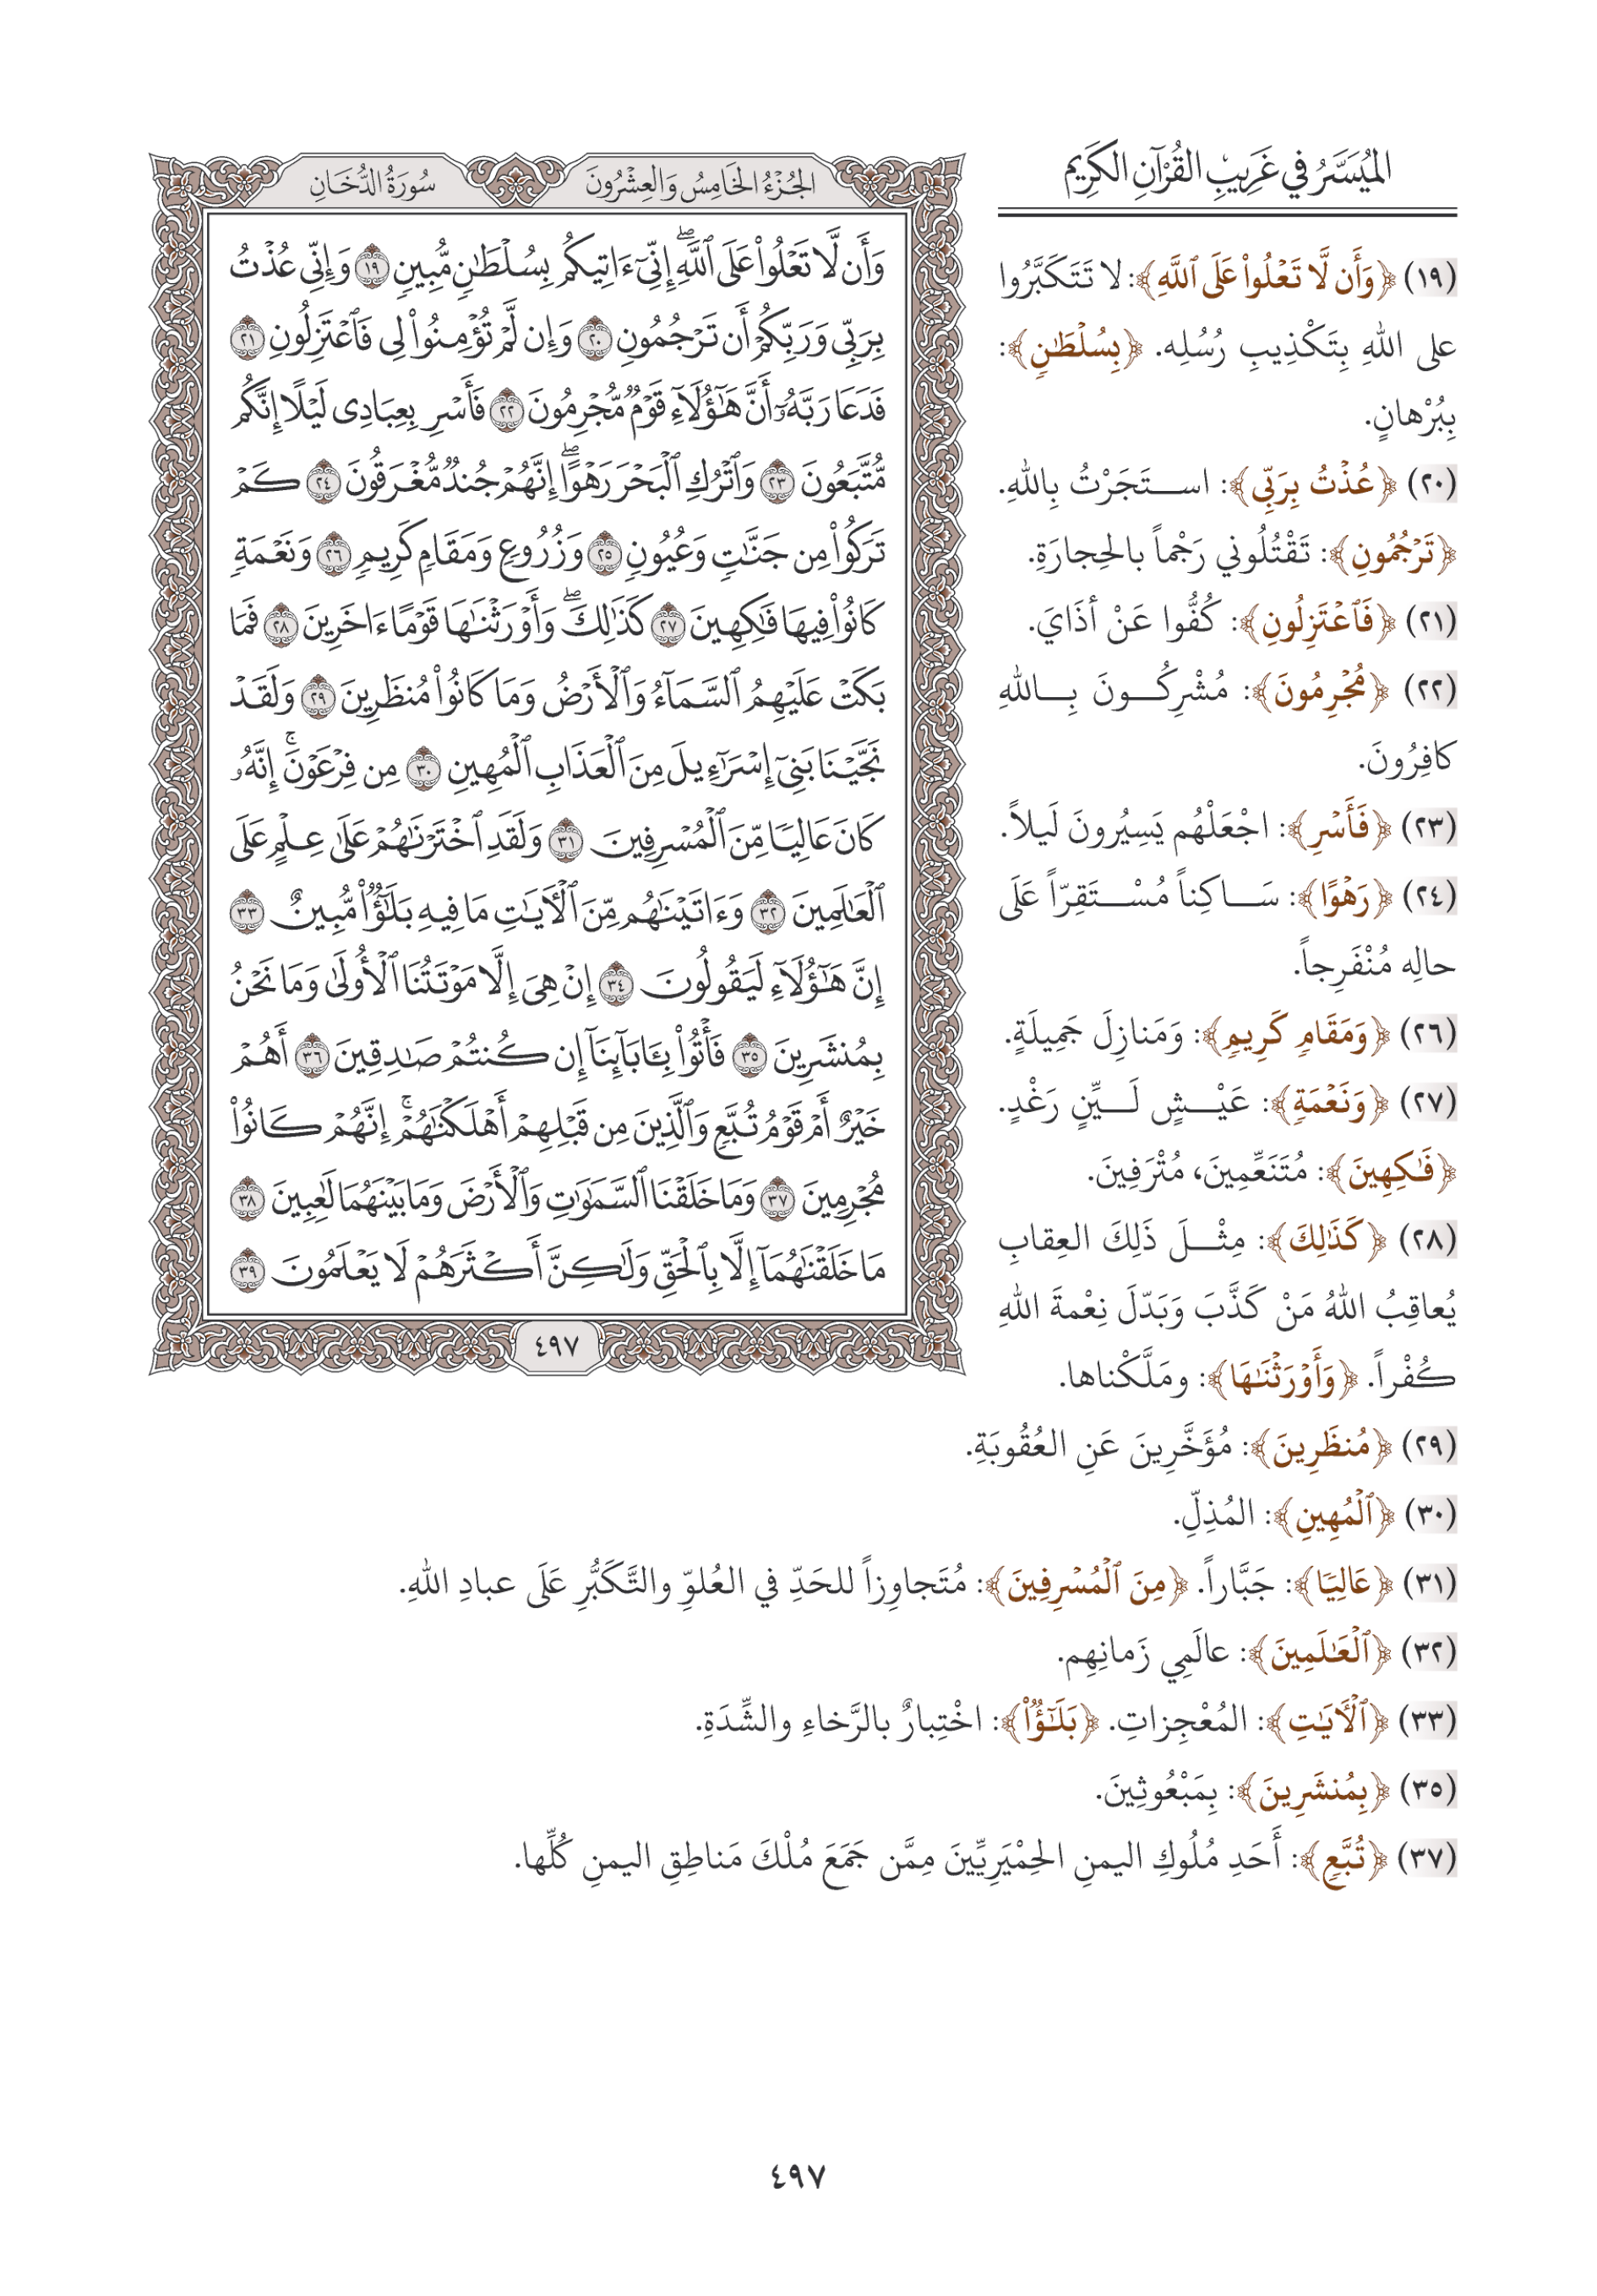 الميسر في غريب القرآن الكريم
(١٩) ﴿وَأَن لَّا تَعْلُوا۟ عَلَى ٱللَّهِ﴾: لا تَتَكَبَّرُوا
على اللهِ بِتَكْذِيبِ رُسُلِه. ﴿بِسُلْطَٰنٍ﴾:
بِبُرْهانٍ.
(٢٠) ﴿عُذْتُ بِرَبِّي﴾: استَجَرْتُ بِاللهِ.
﴿تَرْجُمُونِ﴾: تَقْتُلُوني رَجْماً بالحِجارَةِ.
(٢١) ﴿فَٱعْتَزِلُونِ﴾: كُفُّوا عَنْ أذَايَ.
(٢٢) ﴿مُجْرِمُونَ﴾: مُشْرِكُونَ بِاللهِ
كافِرُونَ.
(٢٣) ﴿فَأَسْرِ﴾: اجْعَلْهُم يَسِيُرونَ لَيلاً.
(٢٤) ﴿رَهْوًا﴾: سَاكِناً مُسْتَقِرّاً عَلَى
حالِه مُنْفَرِجاً.
(٢٦) ﴿وَمَقَامٍ كَرِيمٍ﴾: وَمَنازِلَ جَمِيلَةٍ.
(٢٧) ﴿وَنَعْمَةٍ﴾: عَيْشٍ لَيِّنٍ رَغْدٍ.
﴿فَٰكِهِينَ﴾: مُتَنَعِّمِينَ، مُتْرَفِينَ.
(٢٨) ﴿كَذَٰلِكَ﴾: مِثْلَ ذَلِكَ العِقابِ
يُعاقِبُ اللهُ مَنْ كَذَّبَ وَبَدّلَ نِعْمةَ اللهِ
كُفْراً. ﴿وَأَوْرَثْنَٰهَا﴾: ومَلَّكْناها.
(٢٩) ﴿مُنظَرِينَ﴾: مُؤَخَّرِينَ عَنِ العُقُوبَةِ.
(٣٠) ﴿ٱلْمُهِينِ﴾: المُذِلِّ.
(٣١) ﴿عَالِيًا﴾: جَبَّاراً. ﴿مِنَ ٱلْمُسْرِفِينَ﴾: مُتَجاوِزاً للحَدِّ في العُلوِّ والتَّكَبُّرِ عَلَى عبادِ اللهِ.
(٣٢) ﴿ٱلْعَٰلَمِينَ﴾: عالَمِي زَمانِهِم.
(٣٣) ﴿ٱلْأَيَٰتِ﴾: المُعْجِزاتِ. ﴿بَلَٰٓؤٌا۟﴾: اخْتِبارٌ بالرَّخاءِ والشِّدَةِ.
(٣٥) ﴿بِمُنشَرِينَ﴾: بِمَبْعُوثِينَ.
(٣٧) ﴿تُبَّعٍ﴾: أَحَدِ مُلُوكِ اليمنِ الحِمْيَرِيِّينَ مِمَّن جَمَعَ مُلْكَ مَناطِقِ اليمنِ كُلِّها.
الجُزْءُ الخَامِسُ وَالعِشْرُونَ سُورَةُ الدُّخَانِ
وَأَن لَّا تَعْلُوا۟ عَلَى ٱللَّهِ ۖ إِنِّىٓ ءَاتِيكُم بِسُلْطَٰنٍ مُّبِينٍ ١٩ وَإِنِّى عُذْتُ
بِرَبِّى وَرَبِّكُمْ أَن تَرْجُمُونِ ٢٠ وَإِن لَّمْ تُؤْمِنُوا۟ لِى فَٱعْتَزِلُونِ ٢١
فَدَعَا رَبَّهُۥٓ أَنَّ هَٰٓؤُلَآءِ قَوْمٌ مُّجْرِمُونَ ٢٢ فَأَسْرِ بِعِبَادِى لَيْلًا إِنَّكُم
مُّتَّبَعُونَ ٢٣ وَٱتْرُكِ ٱلْبَحْرَ رَهْوًا ۖ إِنَّهُمْ جُندٌ مُّغْرَقُونَ ٢٤ كَمْ
تَرَكُوا۟ مِن جَنَّٰتٍ وَعُيُونٍ ٢٥ وَزُرُوعٍ وَمَقَامٍ كَرِيمٍ ٢٦ وَنَعْمَةٍ
كَانُوا۟ فِيهَا فَٰكِهِينَ ٢٧ كَذَٰلِكَ ۖ وَأَوْرَثْنَٰهَا قَوْمًا ءَاخَرِينَ ٢٨ فَمَا
بَكَتْ عَلَيْهِمُ ٱلسَّمَآءُ وَٱلْأَرْضُ وَمَا كَانُوا۟ مُنظَرِينَ ٢٩ وَلَقَدْ
نَجَّيْنَا بَنِىٓ إِسْرَٰٓءِيلَ مِنَ ٱلْعَذَابِ ٱلْمُهِينِ ٣٠ مِن فِرْعَوْنَ ۚ إِنَّهُۥ
كَانَ عَالِيًا مِّنَ ٱلْمُسْرِفِينَ ٣١ وَلَقَدِ ٱخْتَرْنَٰهُمْ عَلَىٰ عِلْمٍ عَلَى
ٱلْعَٰلَمِينَ ٣٢ وَءَاتَيْنَٰهُم مِّنَ ٱلْأَيَٰتِ مَا فِيهِ بَلَٰٓؤٌا۟ مُّبِينٌ ٣٣
إِنَّ هَٰٓؤُلَآءِ لَيَقُولُونَ ٣٤ إِنْ هِىَ إِلَّا مَوْتَتُنَا ٱلْأُولَىٰ وَمَا نَحْنُ
بِمُنشَرِينَ ٣٥ فَأْتُوا۟ بِـَٔابَآئِنَآ إِن كُنتُمْ صَٰدِقِينَ ٣٦ أَهُمْ
خَيْرٌ أَمْ قَوْمُ تُبَّعٍ وَٱلَّذِينَ مِن قَبْلِهِمْ أَهْلَكْنَٰهُمْ ۚ إِنَّهُمْ كَانُوا۟
مُجْرِمِينَ ٣٧ وَمَا خَلَقْنَا ٱلسَّمَٰوَٰتِ وَٱلْأَرْضَ وَمَا بَيْنَهُمَا لَٰعِبِينَ ٣٨
مَا خَلَقْنَٰهُمَآ إِلَّا بِٱلْحَقِّ وَلَٰكِنَّ أَكْثَرَهُمْ لَا يَعْلَمُونَ ٣٩
٤٩٧
٤٩٧